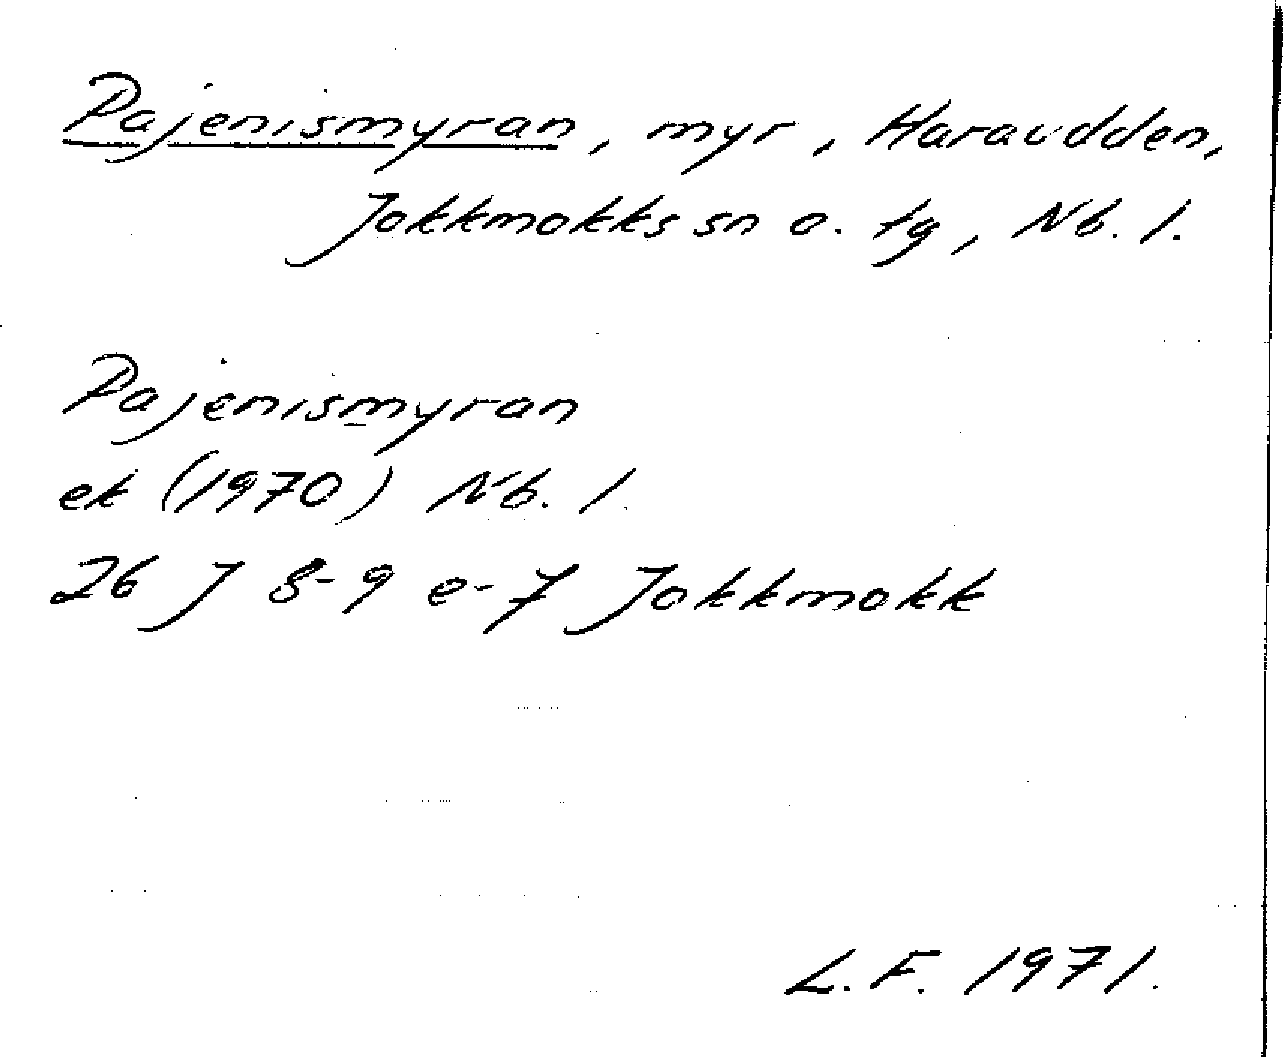 Pajenismyran, myr, Haraudden,
Jokkmokks sn o. tg, Nb. l.
Pajenismyran
ek (1970) Nb. l.
26 J 8-9 e-f Jokkmokk
L. F. 1971.